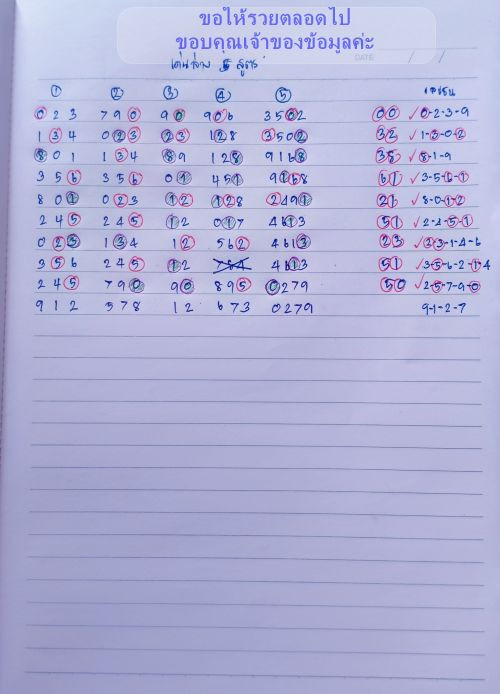 ขอให้รวยตลอดไป
ขอบคุณเจ้าของข้อมูลค่ะ
DATE / /
เด่นล่าง 5 สูตร
① ② ③ ④ ⑤
023 790 90 906 3502 00 ✓0-2-3-9
134 023 23 128 3502 32 ✓1-3-0-2
801 134 89 128 9168 38 ✓8-1-9
356 356 01 451 9168 61 ✓3-5-6-1
801 023 12 128 2491 21 ✓8-0-1-2
245 245 12 017 4613 51 ✓2-4-5-1
023 134 12 562 4613 23 ✓2-3-1-4-6
356 245 12 4613 51 ✓3-5-6-2-1-4
245 790 90 895 0279 50 ✓2-5-7-9-0
912 578 12 673 0279 9-1-2-7